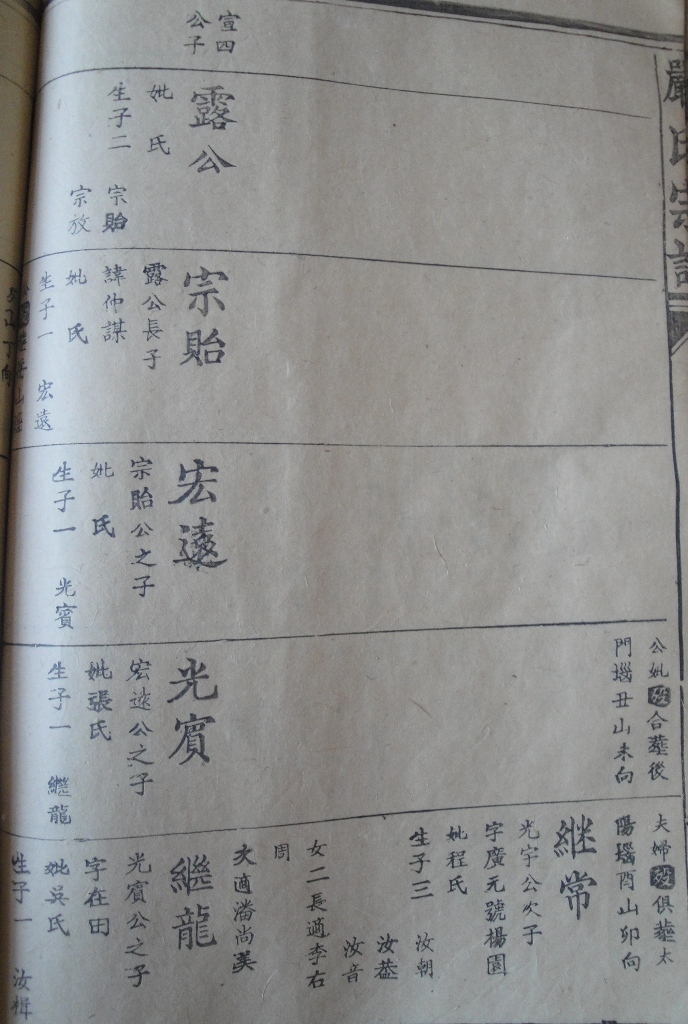 嚴氏宗譜
宣四
公子
露公
妣氏
生子二
宗貽
宗放
宗貽
露公長子
諱仲謀
妣氏
生子一 宏遠
宏遠
宗貽公之子
妣氏
生子一 光賓
公妣歿合塟後
門堖丑山未向
光賓
宏遠公之子
妣張氏
生子一 繼龍
夫婦歿俱塟太
陽堖酉山卯向
継常
光宇公次子
字廣元號楊園
妣程氏
生子三 汝朝
汝㳟
汝音
女二長適李右
周
次適潘尚美
繼龍
光賓公之子
字在田
妣吳氏
生子一 汝楫